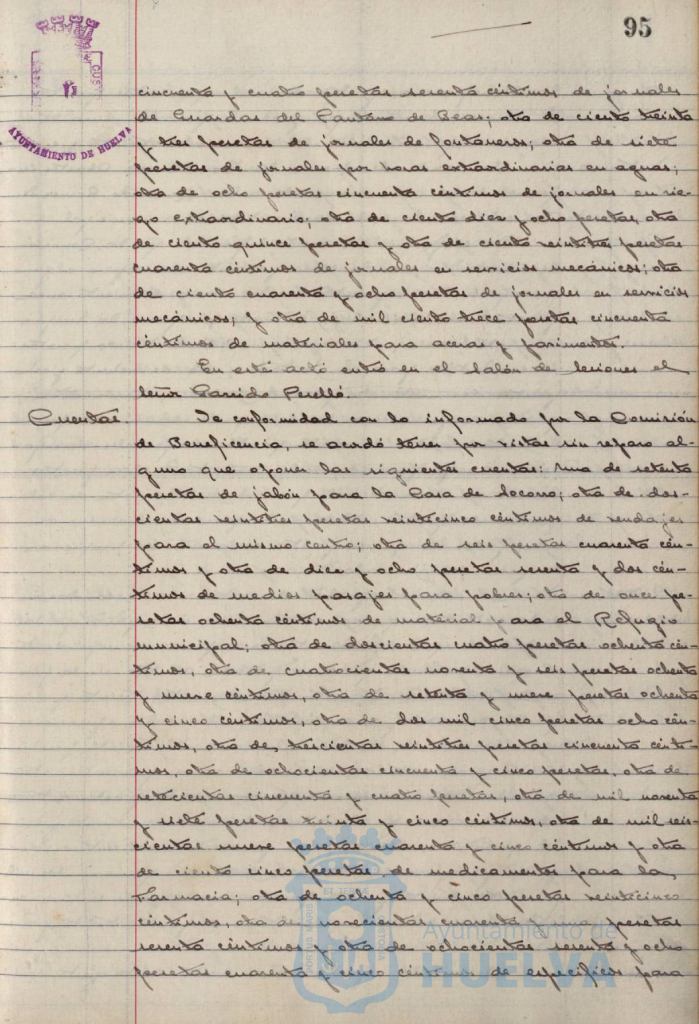 95
AYUNTAMIENTO DE HUELVA
cincuenta y cuatro pesetas sesenta céntimos de jornales
de Guardas del Pantano de Beas; otra de ciento treinta
y tres pesetas de jornales de fontaneros; otra de siete
pesetas de jornales por horas extraordinarias en aguas;
otra de ocho pesetas cincuenta céntimos de jornales en rie-
go extraordinario; otra de ciento diez y ocho pesetas, otra
de ciento quince pesetas y otra de ciento veintitres pesetas
cuarenta céntimos de jornales en servicios mecánicos; otra
de ciento cuarenta y ocho pesetas de jornales en servicios
mecánicos; y otra de mil ciento trece pesetas cincuenta
céntimos de materiales para aceras y pavimentos.
En este acto entró en el Salón de sesiones el
señor Garrido Perelló.
Cuentas.
De conformidad con lo informado por la Comisión
de Beneficencia, se acordó tener por vistas sin reparo al-
guno que oponer las siguientes cuentas: una de setenta
pesetas de jabón para la Casa de Socorro; otra de dos-
cientas veintitres pesetas veinticinco céntimos de vendajes
para el mismo centro; otra de seis pesetas cuarenta cén-
timos y otra de diez y ocho pesetas sesenta y dos cén-
timos de medios pasajes para pobres; otra de once pe-
setas ochenta céntimos de material para el Refugio
municipal; otra de doscientas cuatro pesetas ochenta cén-
timos, otra de cuatrocientas noventa y seis pesetas ochenta
y nueve céntimos, otra de setenta y nueve pesetas ochenta
y cinco céntimos, otra de dos mil cinco pesetas ocho cén-
timos, otra de trescientas veintitres pesetas cincuenta cénti-
mos, otra de ochocientas cincuenta y cinco pesetas, otra de
setecientas cincuenta y cuatro pesetas, otra de mil noventa
y siete pesetas treinta y cinco céntimos, otra de mil seis-
cientas nueve pesetas cuarenta y cinco céntimos y otra
de ciento cinco pesetas, de medicamentos para la
Farmacia; otra de ochenta y cinco pesetas veinticinco
céntimos, otra de novecientas cuarenta y pesetas
sesenta céntimos y otra de ochocientas sesenta y ocho
pesetas cuarenta y cinco céntimos de específicos para
Ayuntamiento de
HUELVA